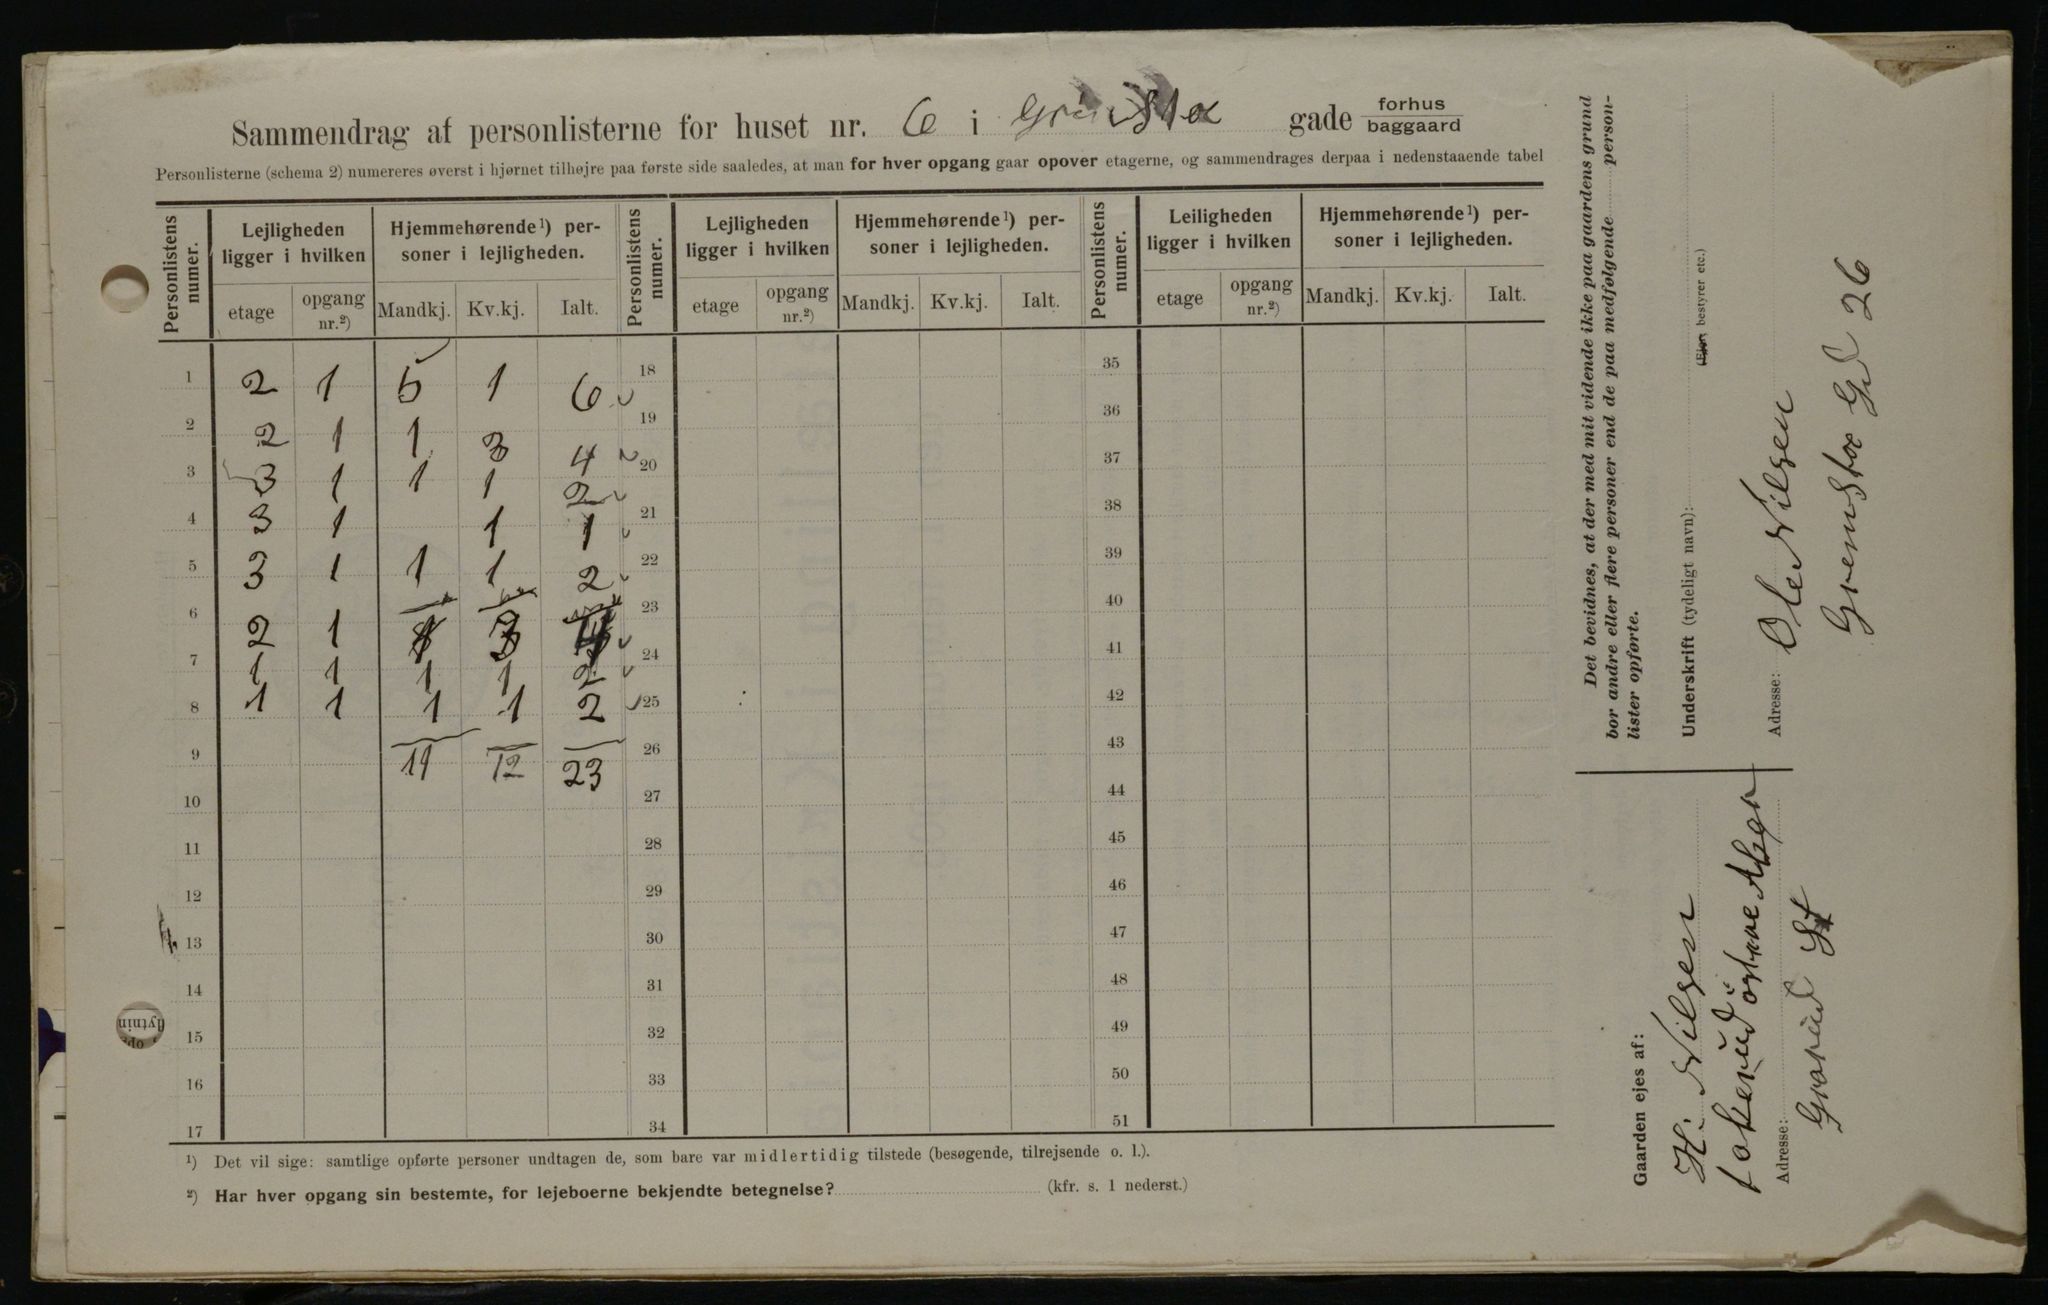 Sammendrag af personlisterne for huset nr. 6 i gade forhus baggaard
Personlisterne (schema 2) numereres øverst i hjørnet tilhøjre paa første side saaledes, at man for hver opgang gaar opover etagerne, og sammendrages derpaa i nedenstaaende tabel
Personlistens numer. Lejligheden ligger i hvilken Hjemmehørende¹) personer i lejligheden. Personlistens numer. Lejligheden ligger i hvilken Hjemmehørende¹) personer i lejligheden. Personlistens numer. Leiligheden ligger i hvilken Hjemmehørende¹) personer i lejligheden.
etage opgang nr.²) Mandkj. Kv.kj. Ialt. etage opgang nr.²) Mandkj. Kv.kj. Ialt. etage opgang nr.²) Mandkj. Kv.kj. Ialt.
1 2 1 5 1 6 18 35
2 2 1 1 3 4 19 36
3 3 1 1 1 2 20 37
4 3 1 1 1 21 38
5 3 1 1 1 2 22 39
6 2 1 3 23 40
7 1 1 1 1 2 24 41
8 1 1 1 1 2 25 42
9 11 12 23 26 43
10 27 44
11 28 45
12 29 46
13 30 47
14 31 48
15 32 49
16 33 50
17 34 51
¹) Det vil sige: samtlige opførte personer undtagen de, som bare var midlertidig tilstede (besøgende, tilrejsende o. l.).
²) Har hver opgang sin bestemte, for lejeboerne bekjendte betegnelse? (kfr. s. 1 nederst.)
Det bevidnes, at der med mit vidende ikke paa gaardens grund
bor andre eller flere personer end de paa medfølgende person-
lister opførte.
Underskrift (tydeligt navn):
(Ejer, bestyrer etc.)
Adresse: Ole Nilsen
Grenustøe Gd 26
Gaarden ejes af:
H. Nilsen
Adresse:
Grorud St